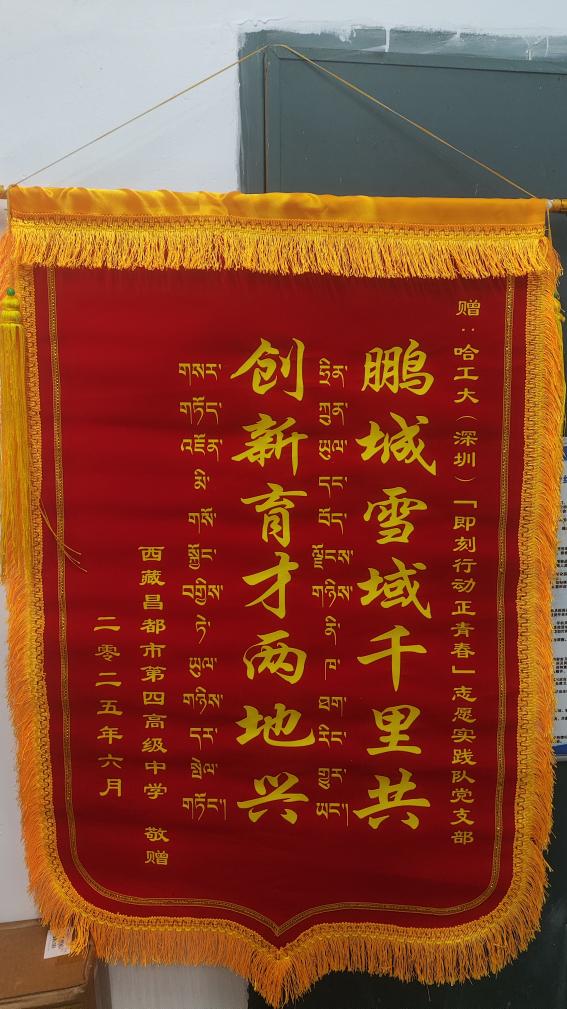 赠：哈工大（深圳）「即刻行动正青春」志愿实践队党支部
鹏城雪域千里共
ཧྲིན་ཀྲུན་ཡུལ་དང་བོད་ལྗོངས་གཉིས་ནི་ཁ་ཐག་རིང་གྱུར་ཡང་།
创新育才两地兴
གསར་གཏོད་འཛོན་མི་གསོ་སྐྱོང་བགྱིས་ཏེ་ཡུལ་གཉིས་དར་སྤེལ་གཏོང་།།
西藏昌都市第四高级中学 敬赠
二零二五年六月